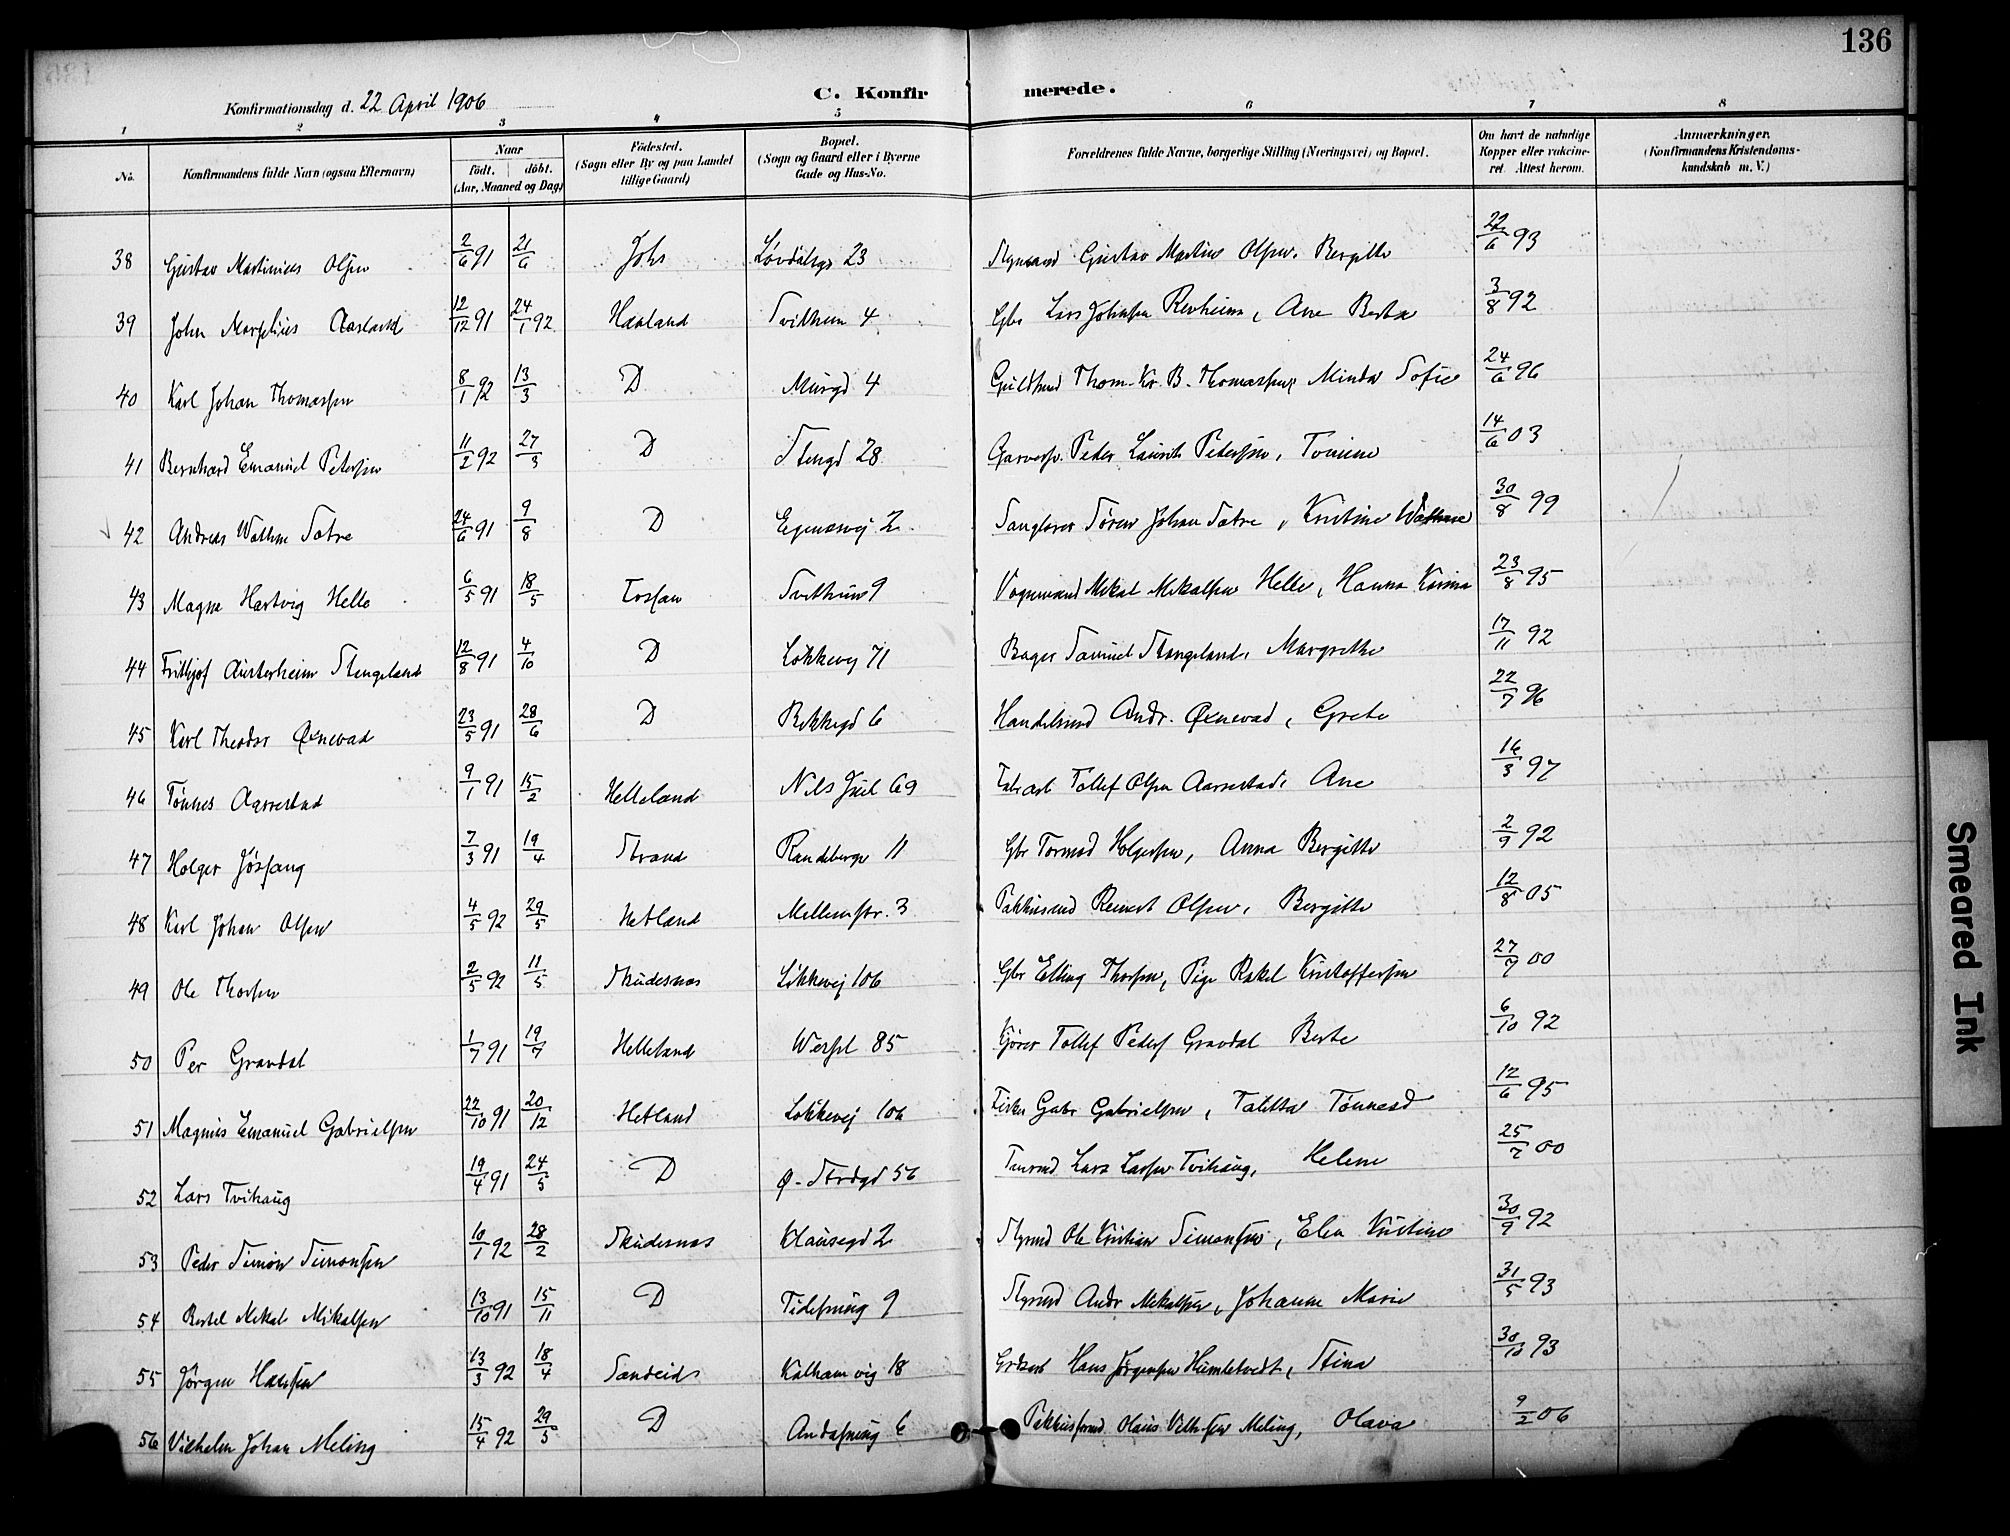 136
Konfirmationsdag d. 22 April 1906
C. Konfirmerede.
1 2 3 4 5 6 7 8
No.
Konfirmandens fulde Navn (ogsaa Efternavn)
Naar født. døbt. (Aar, Maaned og Dag)
Fødested. (Sogn eller By og paa Landet tillige Gaard)
Bopæl. (Sogn og Gaard eller i Byerne Gade og Hus-No.
Forældrenes fulde Navne, borgerlige Stilling (Næringsvei) og Bopæl.
Om havt de naturlige Kopper eller vakcineret. Attest herom.
Anmærkninger. (Konfirmandens Kristendomskundskab m. V.)
38 Gustav Martinius Olsen 2/6 91 21/6 Johs Løvdalsgs 23 Gustav Martin Olsen, Bergitte 22/6 93
39 John Aasland 12/12 91 24/1 92 Haaland Svithun 4 Gbr Lars Johnsen Revheim, Ane Berta 3/8 92
40 Karl Johan Thomassen 8/1 92 13/3 D Murgd 4 Thom. Kr. B. Thomassen, Minda Sofie 24/6 96
41 Bernhard Emanuel Petersen 11/2 92 27/3 D Stengd 28 Peder Laurits Petersen, Tomine 14/6 03
42 Andreas Wathne Sætre 24/6 91 9/8 D Egenesvej 2 Sanglærer Søren Johan Sætre, Kristine Wathne 30/8 99
43 Magne Hartvig Helle 6/5 91 18/5 Fossan Svithun 9 Vognmand Mikal Mikalsen Helle, Hanna Karina 23/8 95
44 Frithjof Austerheim Stangeland 12/8 91 4/10 D Løkkevej 71 Bager Samuel Stangeland, Margrethe 17/11 92
45 Karl Theodor Øxnevad 23/5 91 28/6 D Bekkegd 6 Handelsmd Andr. Øxnevad, Grete 22/7 96
46 Tønnes Aarrestad 9/1 91 15/2 Helleland Nils Juel 69 Fabrarb Tollef Olsen Aarrestad, Ane 16/3 97
47 Holger Jøssang 7/3 91 19/4 Strand Randebergv 11 Gbr Tormod Holgersen, Anna Bergitte 2/9 92
48 Karl Johan Olsen 4/5 92 29/5 Hetland Mellemstr. 3 Pakhusmd Reinert Olsen, Bergitte 12/8 05
49 Ole Thorsen 2/5 92 11/5 Skudesnæs Løkkevej 106 Gbr Elling Thorsen, Pige Rakel Kristoffersen 27/7 00
50 Per Gravdal 1/7 91 19/7 Helleland Werft 85 Kjører Tollef Peders Gravdal Berte 6/10 92
51 Magnus Emanuel Gabrielsen 22/10 91 20/12 Hetland Løkkevej 106 Fisker Gabr Gabrielsen, Talitta Tønnesd 12/6 95
52 Lars Tvihaug 19/4 91 24/5 D Ø. Strdgd 56 Lars Larsen Tvihaug, Helene 25/7 00
53 Peder Simon Simonsen 10/1 92 28/2 Skudesnæs Klausegd 2 Styrmd Ole Kristian Simonsen, Elen Kristine 30/9 92
54 Bertel Mikal Mikalsen 13/10 91 15/11 D Tidesmug 9 Styrmd Andr Mikalsen, Johanne Marie 31/5 93
55 Jørgen Hansen 13/3 92 18/4 Sandeid Kalhamvig 18 Hans Jørgensen Humletvedt, Stina 30/10 93
56 Vilhelm Johan Meling 15/4 92 29/5 D Andasmug 6 Pakhusformd Olaus Vilhelmsen Meling, Olava 9/2 06
Smeared Ink